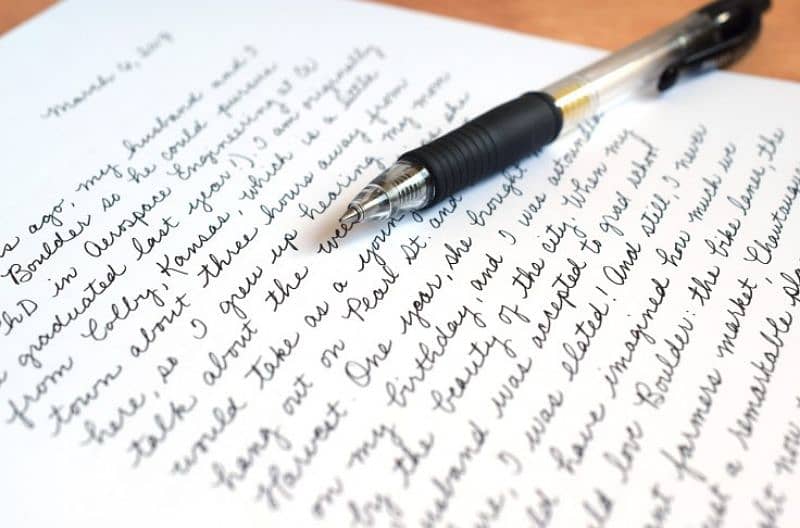 March 6, 2019
ago, my husband and I
Boulder so he could pursue
PhD in Aerospace Engineering at
graduated last year!). I am originally
from Colby, Kansas, which is a little
town about three hours away from
here, so I grew up hearing my mom
talk about the
would take as a young
hang out on Pearl St. and
Harvest. One year, she brought
on my birthday, and I was astounded
by the beauty of the city. When my
husband was accepted to grad school
I was elated! And still, I never
have imagined how much we
love Boulder: the bike lanes, the
farmers market, Chautauqua
a remarkable
now